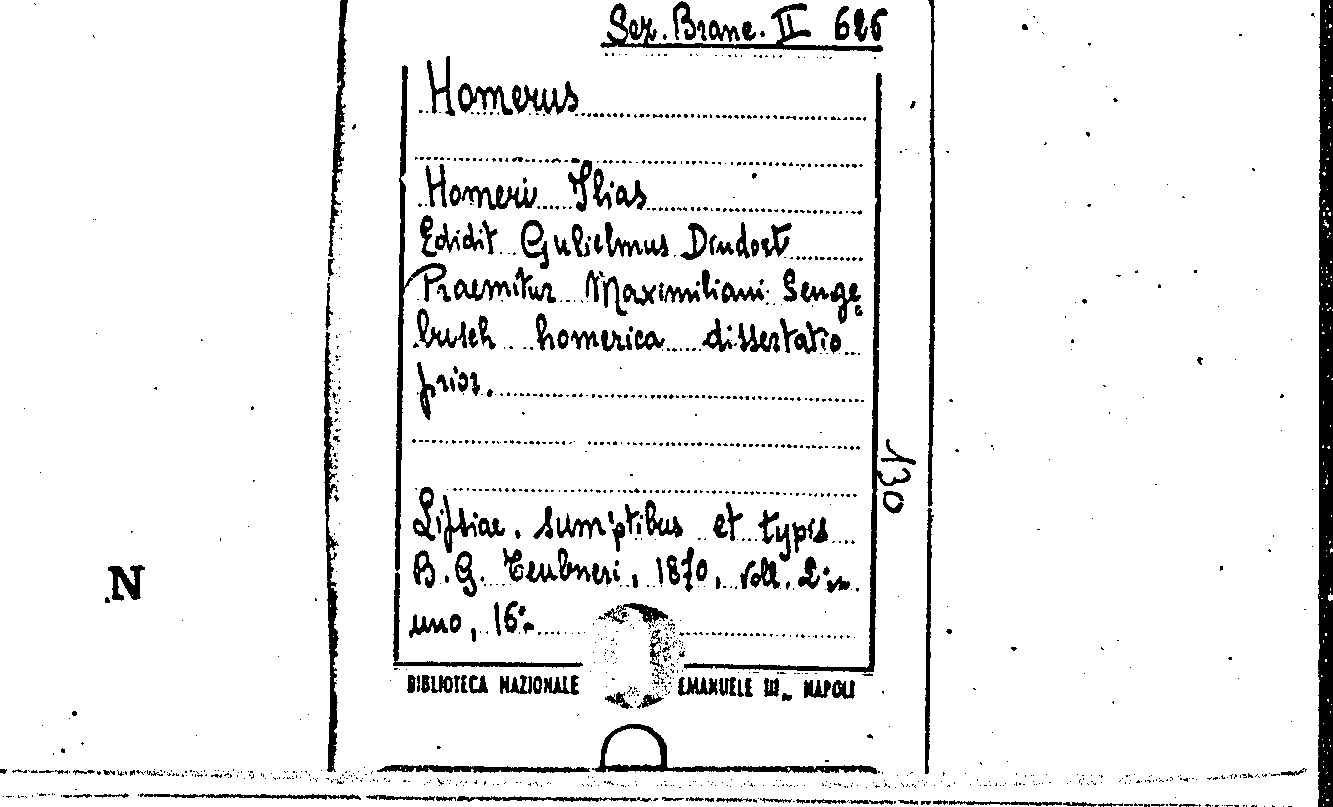 Sez. Branc. II 626
Homerus
Homeri Ilias
Edidit Gulielmus Dindorf
Praemitur Maximiliani Senge=
busch homerica dissertatio
prior.
130
Lipsiae, sumptibus et typis
B. G. Teubneri, 1870, voll. 2 in
uno, 16°
N
BIBLIOTECA NAZIONALE EMANUELE III_ NAPOLI